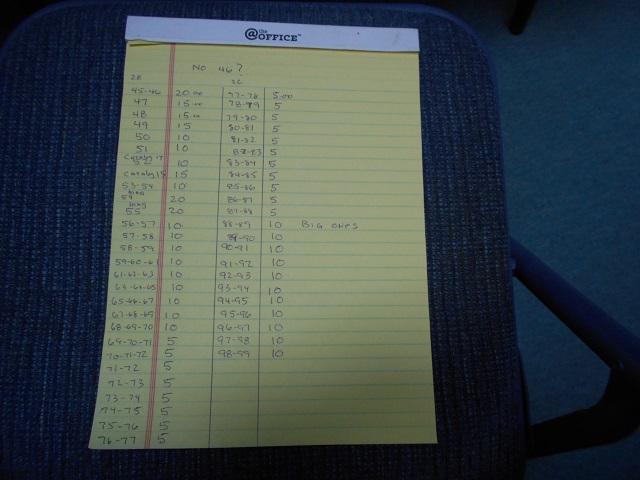 @the OFFICE™
NO 46?
45-46 20.00 77-78 5.00
47 15.00 78-79 5
48 15.00 79-80 5
49 15 80-81 5
50 10 81-82 5
51 10 82-83 5
52 10 83-84 5
15 84-85 5
53-54 10 85-86 5
54 20 86-87 5
55 20 87-88 5
56-57 10 88-89 10 BIG ONES
57-58 10 89-90 10
58-59 10 90-91 10
59-60-61 10 91-92 10
61-62-63 10 92-93 10
63-64-65 10 93-94 10
65-66-67 10 94-95 10
67-68-69 10 95-96 10
68-69-70 10 96-97 10
69-70-71 5 97-98 10
70-71-72 5 98-99 10
71-72 5
72-73 5
73-74 5
74-75 5
75-76 5
76-77 5